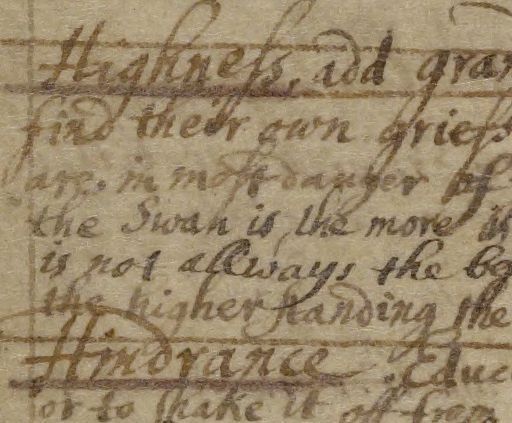 Highness, add gran
find their own griefs
are in most danger of
the Swan is, the more
is not allways the be
the higher standing the
Hindrance Educ
or to shake it off from